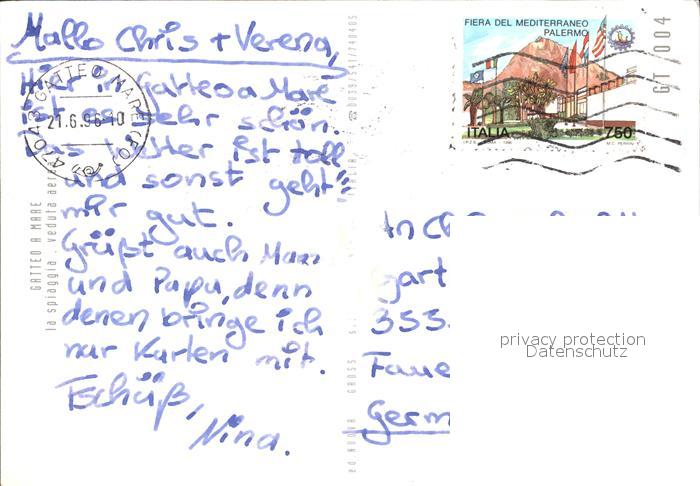 Hallo Chris + Verena,
Hier in Gatteo a Mare
ist es sehr schön.
Das Wetter ist toll
und sonst geht's
mir gut.
Grüßt auch Mama
und Papa, denn
denen bringe ich
nur Karten mit.
Tschüß,
Nina.
47043 GATTEO MARE (FO)
21.6.96-10
GATTEO A MARE
la spiaggia - veduta aerea
FIERA DEL MEDITERRANEO
PALERMO
ITALIA 750
GT 004
An Ch
gart
353
Faue
Germ
privacy protection
Datenschutz